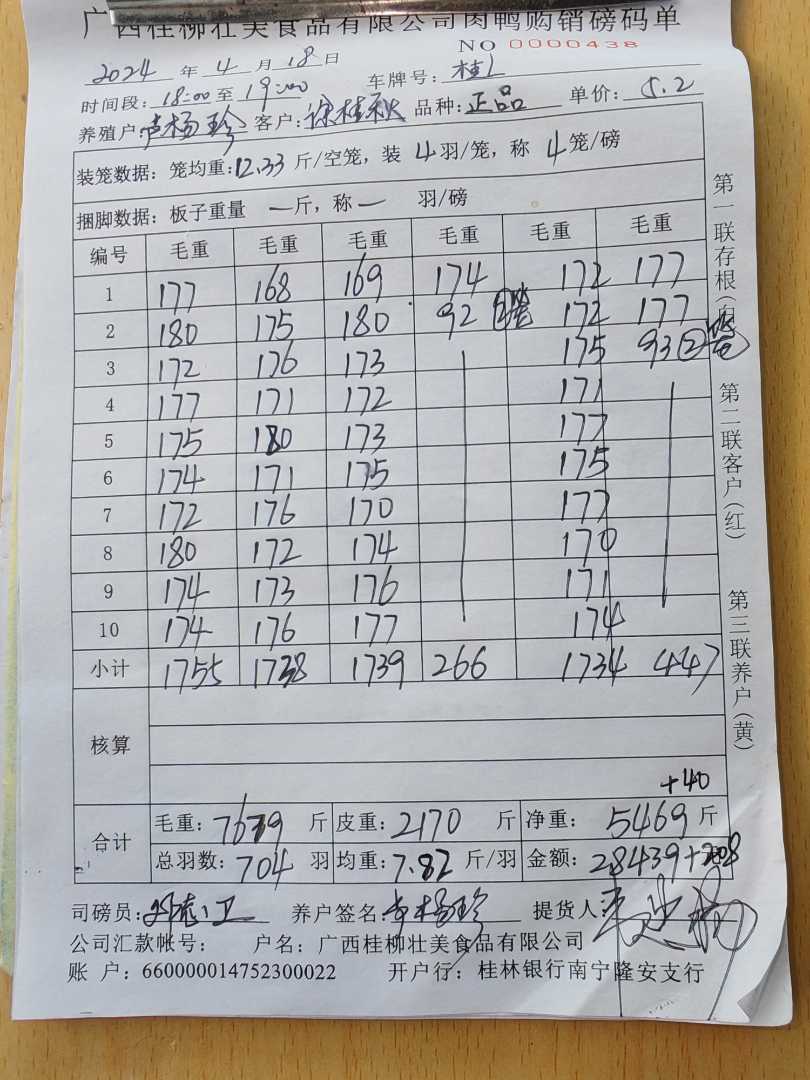 广西桂柳壮美食品有限公司肉鸭购销磅码单
NO 0000438
2024 年 4 月 18 日
时间段: 18:00 至 19:00 车牌号: 桂L
养殖户: 卢杨珍 客户: 徐桂秋 品种: 正品 单价: 5.2
装笼数据: 笼均重: 12.33 斤/空笼, 装 4 羽/笼, 称 4 笼/磅
捆脚数据: 板子重量 一 斤, 称 一 羽/磅
编号 毛重 毛重 毛重 毛重 毛重 毛重
1 177 168 169 174 172 177
2 180 175 180 92 ②笼 172 177
3 172 176 173 175 93 ②笼
4 177 171 172 171
5 175 180 173 177
6 174 171 175 175
7 172 176 170 177
8 180 172 174 170
9 174 173 176 171
10 174 176 177 174
小计 1755 1738 1739 266 1734 447
核算
+40
合计 毛重: 7639 斤 皮重: 2170 斤 净重: 5469 斤
总羽数: 704 羽 均重: 7.82 斤/羽 金额: 28439+208
司磅员: 养户签名: 卢杨珍 提货人:
公司汇款帐号: 户名: 广西桂柳壮美食品有限公司
账 户: 660000014752300022 开户行: 桂林银行南宁隆安支行
第一联存根(白)
第二联客户(红)
第三联养户(黄)